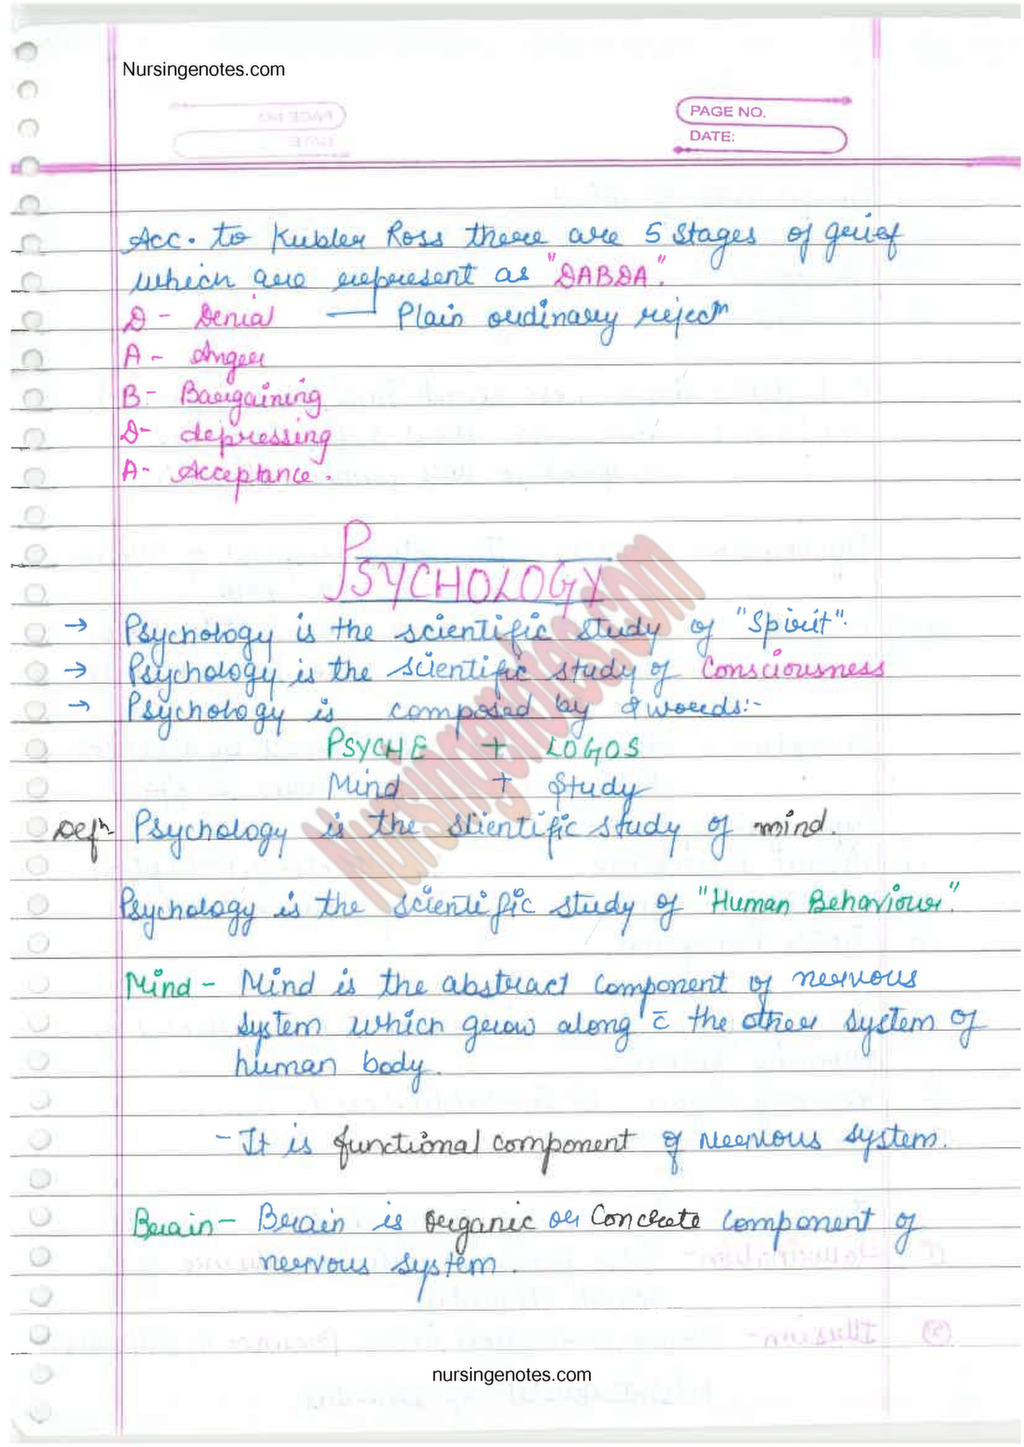 Nursingenotes.com
PAGE NO.
DATE:
Acc. to Kubler Ross there are 5 stages of grief
which are represent as "DABDA".
D - Denial — Plain ordinary rejecⁿ
A - Anger
B - Bargaining
D - depressing
A - Acceptance.
PSYCHOLOGY
→ Psychology is the scientific study of "Spirit".
→ Psychology is the scientific study of Consciousness
→ Psychology is composed by 2 words:-
PSYCHE + LOGOS
Mind + Study
Defⁿ Psychology is the scientific study of mind.
Psychology is the scientific study of "Human Behaviour".
Mind - Mind is the abstract component of nervous
system which grow along c̄ the other system of
human body.
- It is functional component of Nervous system.
Brain - Brain is organic or Concrete component of
nervous system.
Nursingenotes.com
nursingenotes.com